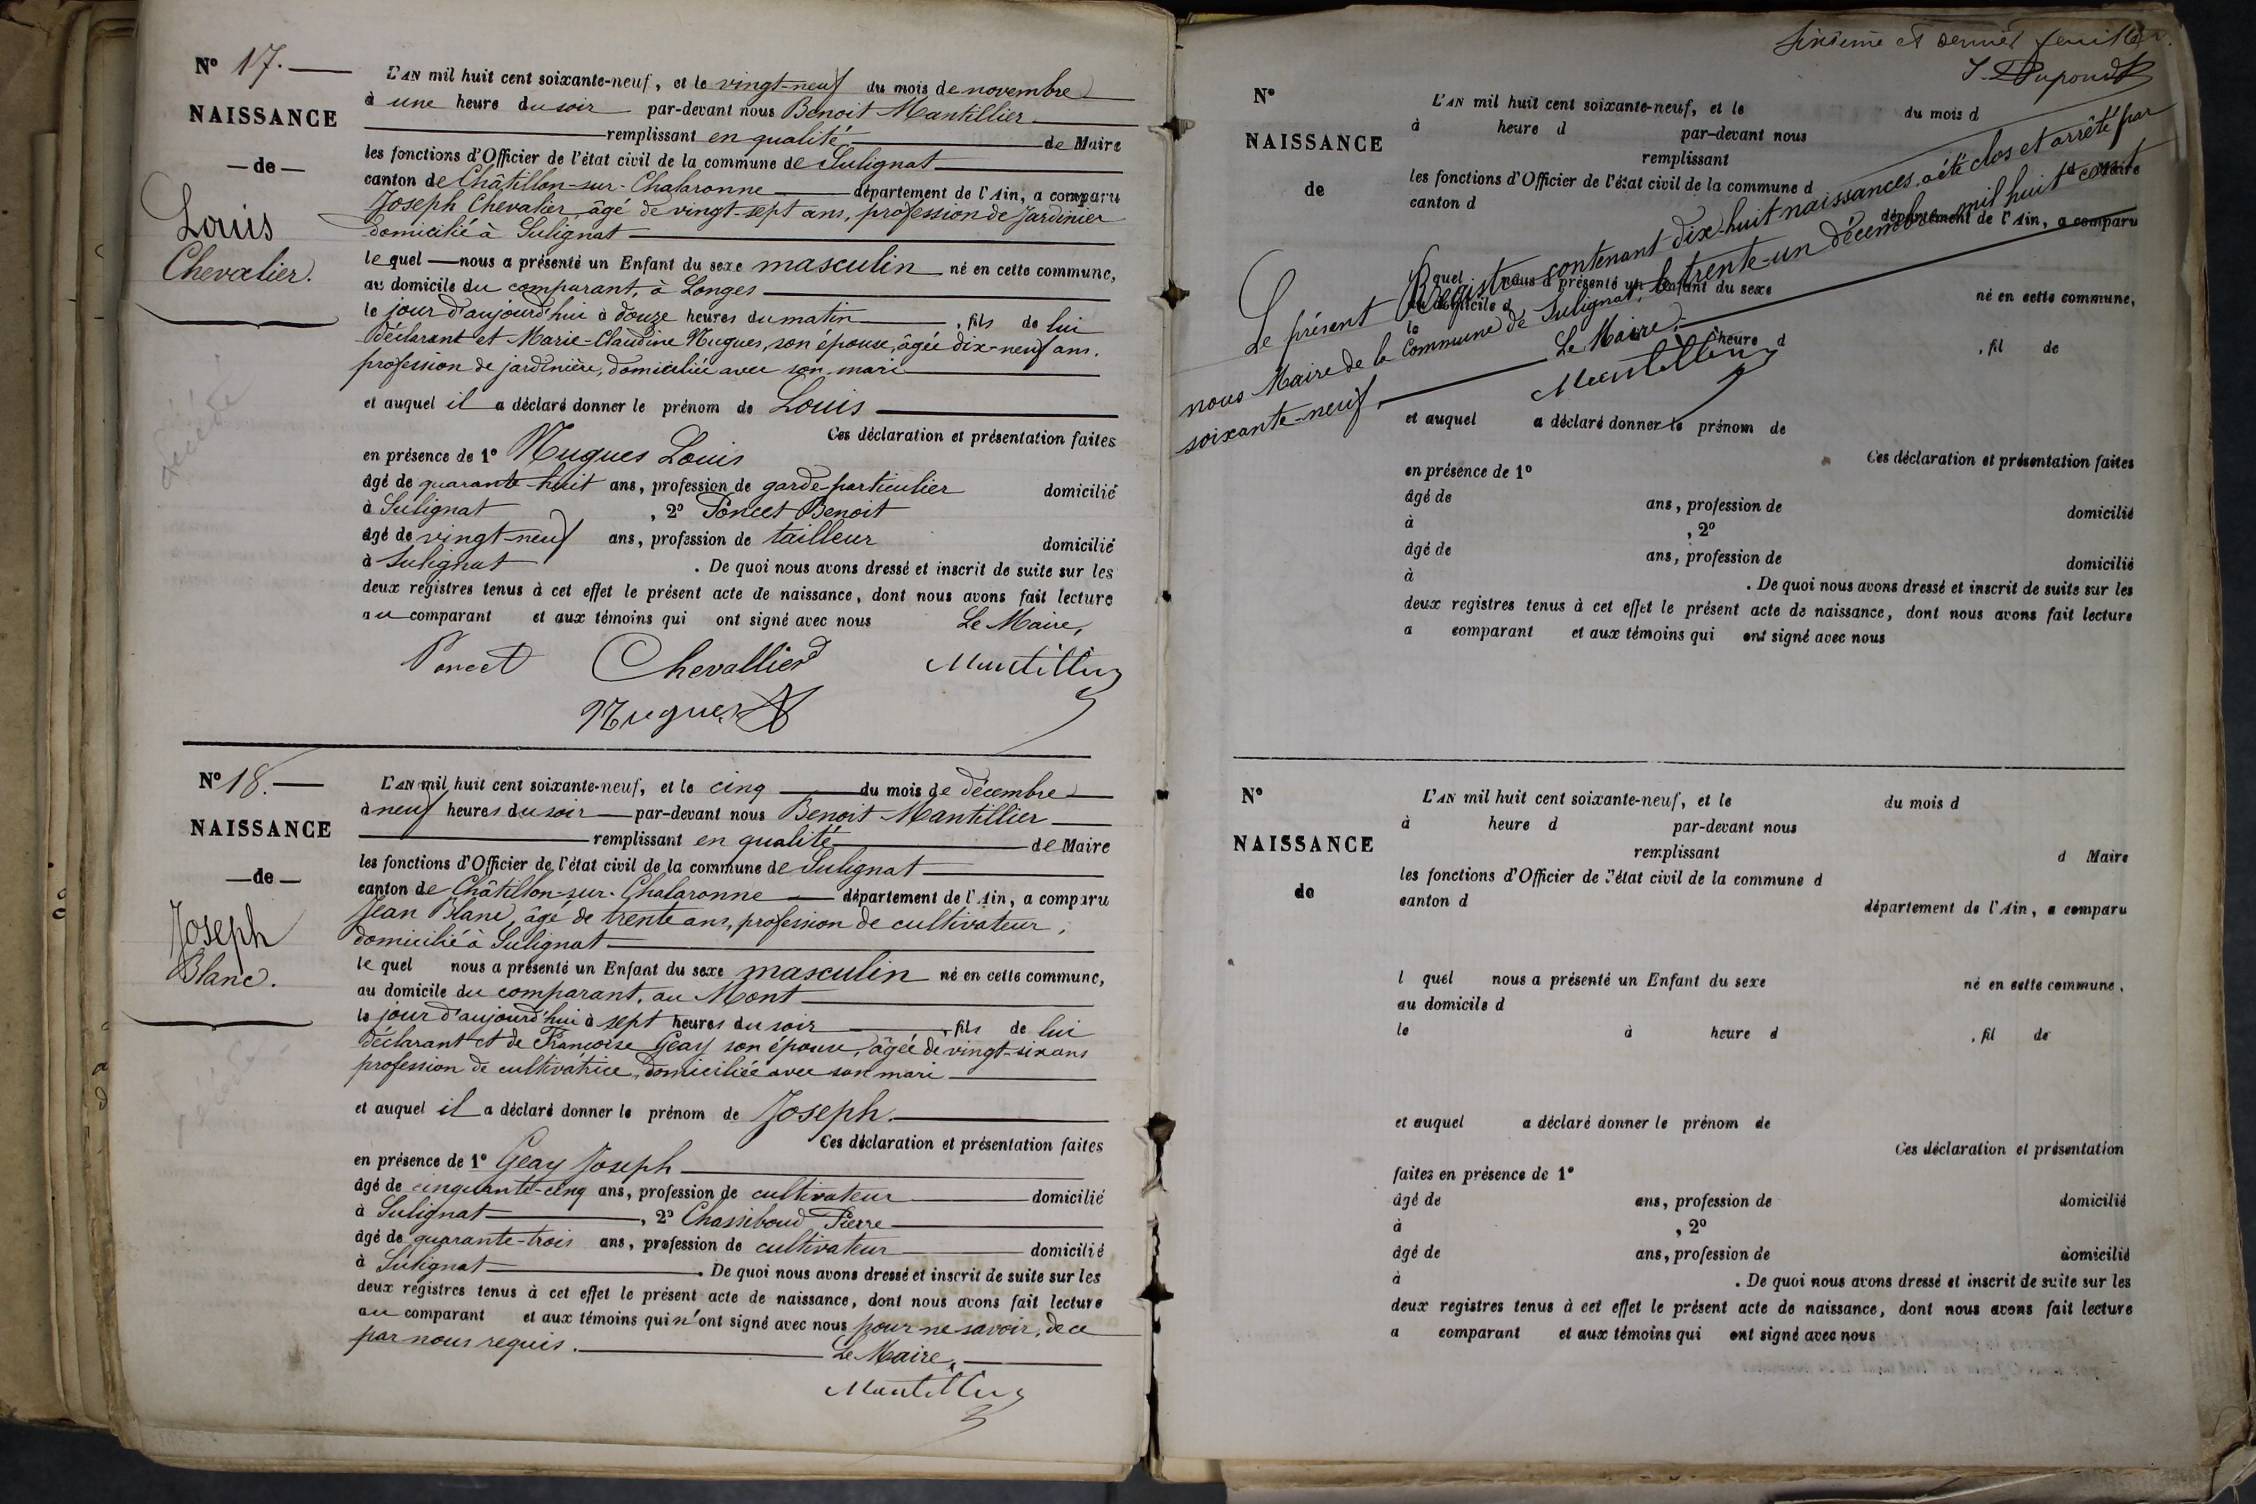 N° 17.
NAISSANCE
de
Louis
Chevalier.
L'AN mil huit cent soixante-neuf, et le vingt-neuf du mois de novembre
à une heure du soir par-devant nous Benoit Mantillier
remplissant en qualité de Maire
les fonctions d'Officier de l'état civil de la commune de Sulignat
canton de Châtillon-sur-Chalaronne département de l'Ain, a comparu
Joseph Chevalier, âgé de vingt-sept ans, profession de jardinier
domicilié à Sulignat
lequel nous a présenté un Enfant du sexe masculin né en cette commune,
au domicile du comparant, à Longes
le jour d'aujourd'hui à douze heures du matin, fils de lui
déclarant et Marie-Claudine Nugues, son épouse, âgée dix-neuf ans.
profession de jardinière, domiciliée avec son mari
et auquel il a déclaré donner le prénom de Louis
Ces déclaration et présentation faites
en présence de 1° Nugues Louis
âgé de quarante-huit ans, profession de garde particulier domicilié
à Sulignat, 2° Poncet Benoit
âgé de vingt-neuf ans, profession de tailleur domicilié
à Sulignat. De quoi nous avons dressé et inscrit de suite sur les
deux registres tenus à cet effet le présent acte de naissance, dont nous avons fait lecture
au comparant et aux témoins qui ont signé avec nous Le Maire,
Poncet Chevallier Mantillier
Nugues
N° 18.
NAISSANCE
de
Joseph
Blanc.
L'AN mil huit cent soixante-neuf, et le cinq du mois de décembre
à neuf heures du soir par-devant nous Benoit Mantillier
remplissant en qualité de Maire
les fonctions d'Officier de l'état civil de la commune de Sulignat
canton de Châtillon-sur-Chalaronne département de l'Ain, a comparu
Jean Blanc, âgé de trente ans, profession de cultivateur,
domicilié à Sulignat
lequel nous a présenté un Enfant du sexe masculin né en cette commune,
au domicile du comparant, au Mont
le jour d'aujourd'hui à sept heures du soir, fils de lui
déclarant et de Françoise Geay son épouse, âgée de vingt-six ans
profession de cultivatrice, domiciliée avec son mari
et auquel il a déclaré donner le prénom de Joseph.
Ces déclaration et présentation faites
en présence de 1° Geay Joseph
âgé de cinquante-cinq ans, profession de cultivateur domicilié
à Sulignat, 2° Chassiboud Pierre
âgé de quarante-trois ans, profession de cultivateur domicilié
à Sulignat. De quoi nous avons dressé et inscrit de suite sur les
deux registres tenus à cet effet le présent acte de naissance, dont nous avons fait lecture
au comparant et aux témoins qui n'ont signé avec nous pour ne savoir, de ce
par nous requis. Le Maire,
Mantillier
Sixième et dernier feuillet.
J. Dupond
N°
NAISSANCE
de
L'AN mil huit cent soixante-neuf, et le du mois d
à heure d par-devant nous
remplissant d Maire
les fonctions d'Officier de l'état civil de la commune d
canton d département de l'Ain, a comparu
l quel nous a présenté un Enfant du sexe né en cette commune,
au domicile d
le heure d , fil de
Le présent Registre contenant dix-huit naissances, a été clos et arrêté par
nous Maire de la Commune de Sulignat, le trente-un décembre mil huit cent
soixante-neuf.
Le Maire,
Mantillier
et auquel a déclaré donner le prénom de
Ces déclaration et présentation faites
en présence de 1°
âgé de ans, profession de domicilié
à , 2°
âgé de ans, profession de domicilié
à . De quoi nous avons dressé et inscrit de suite sur les
deux registres tenus à cet effet le présent acte de naissance, dont nous avons fait lecture
a comparant et aux témoins qui ont signé avec nous
N°
NAISSANCE
de
L'AN mil huit cent soixante-neuf, et le du mois d
à heure d par-devant nous
remplissant d Maire
les fonctions d'Officier de l'état civil de la commune d
canton d département de l'Ain, a comparu
l quel nous a présenté un Enfant du sexe né en cette commune,
au domicile d
le à heure d , fil de
et auquel a déclaré donner le prénom de
Ces déclaration et présentation
faites en présence de 1°
âgé de ans, profession de domicilié
à , 2°
âgé de ans, profession de domicilié
à . De quoi nous avons dressé et inscrit de suite sur les
deux registres tenus à cet effet le présent acte de naissance, dont nous avons fait lecture
a comparant et aux témoins qui ont signé avec nous